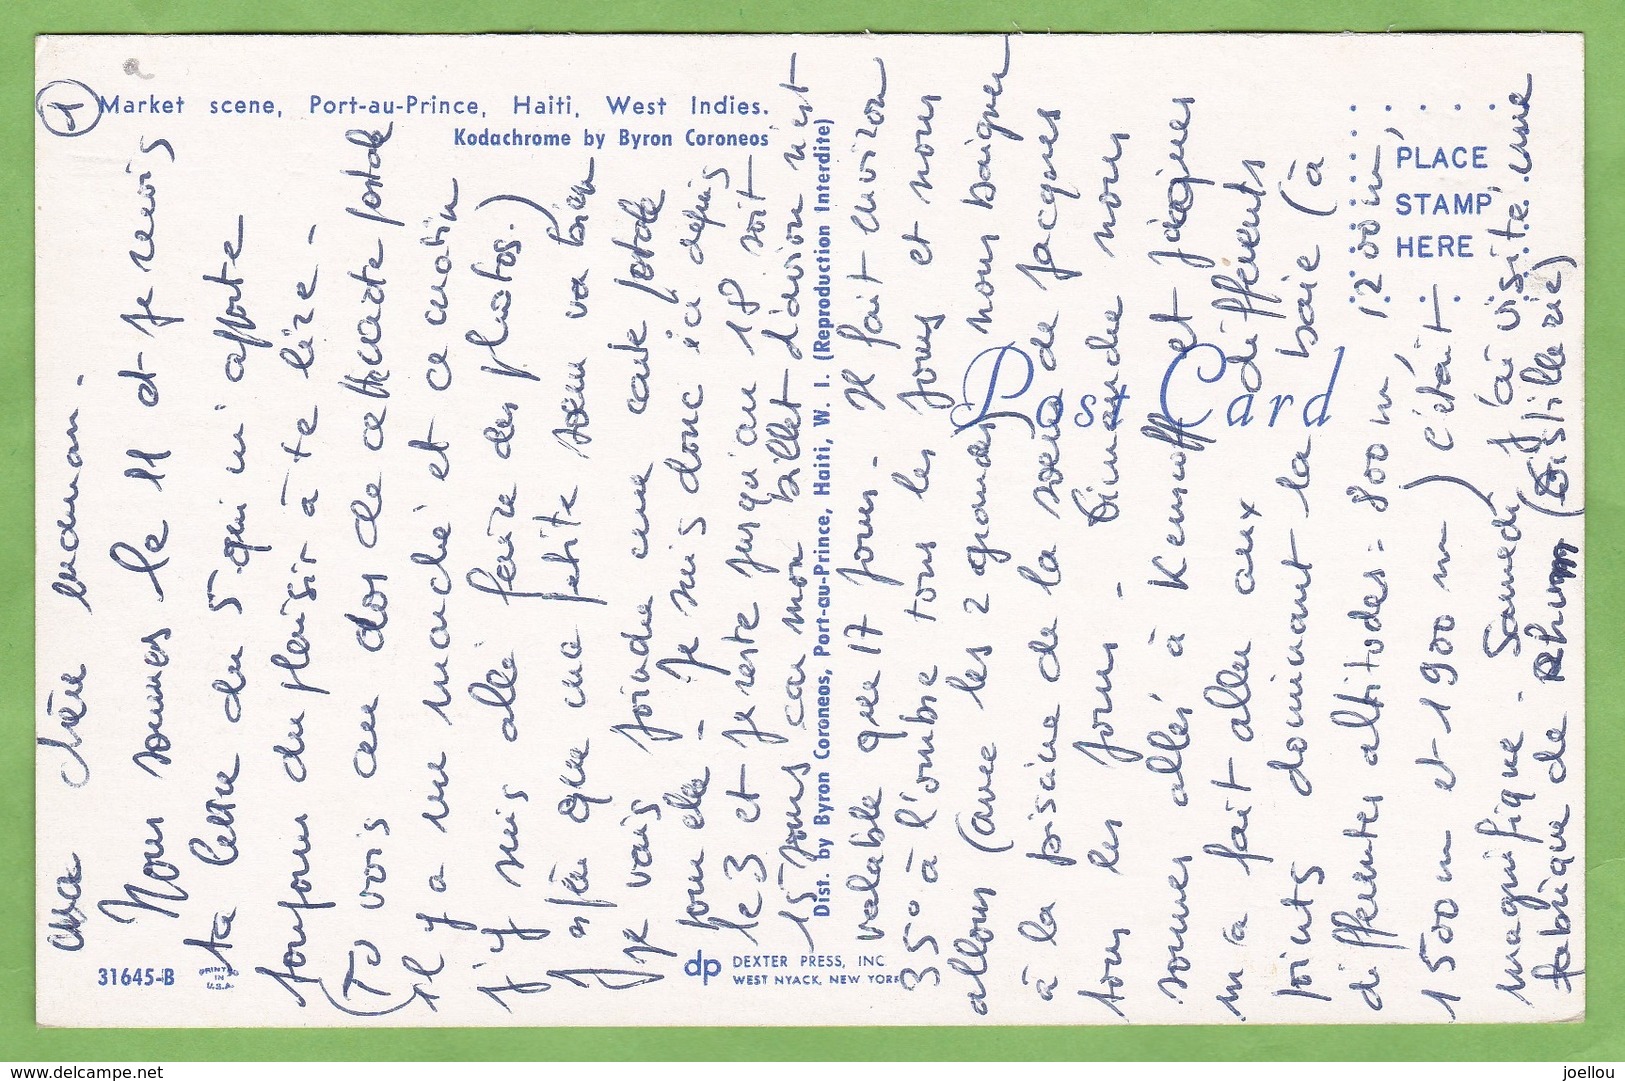 1
Market scene, Port-au-Prince, Haiti, West Indies.
Kodachrome by Byron Coroneos
PLACE
STAMP
HERE
Post Card
Dist. by Byron Coroneos, Port-au-Prince, Haiti, W. I. (Reproduction Interdite)
31645-B
PRINTED
IN
U.S.A.
dp
DEXTER PRESS, INC
WEST NYACK, NEW YORK
Ma chère maman.
Nous sommes le 11 et je reçois
ta lettre du 5 qui m'apporte
toujours du plaisir à te lire -
(Tu vois au dos de ce carte postale
il y a un marché et ce matin
j'y suis allé faire des photos.)
J'espère que ma petite sœur va bien
Je vais joindre une carte postale
pour elle - Je suis donc ici depuis
le 3 et je reste jusqu'au 18 soit
15 jours car mon billet d'avion n'est
valable que 17 jours - Il fait environ
35° à l'ombre tous les jours et nous
allons (avec les 2 grandes) nous baigner
à la piscine de la sœur de Jacques
tous les jours - Dimanche nous
sommes allés à Kenscoff et Jacques
m'a fait aller aux différents
points dominant la baie (à
différentes altitudes = 800 m, 1200 m,
1500 m et 1900 m) c'était
magnifique. Samedi j'ai visité une
fabrique de Rhum (Distillerie)
www.delcampe.net
joellou